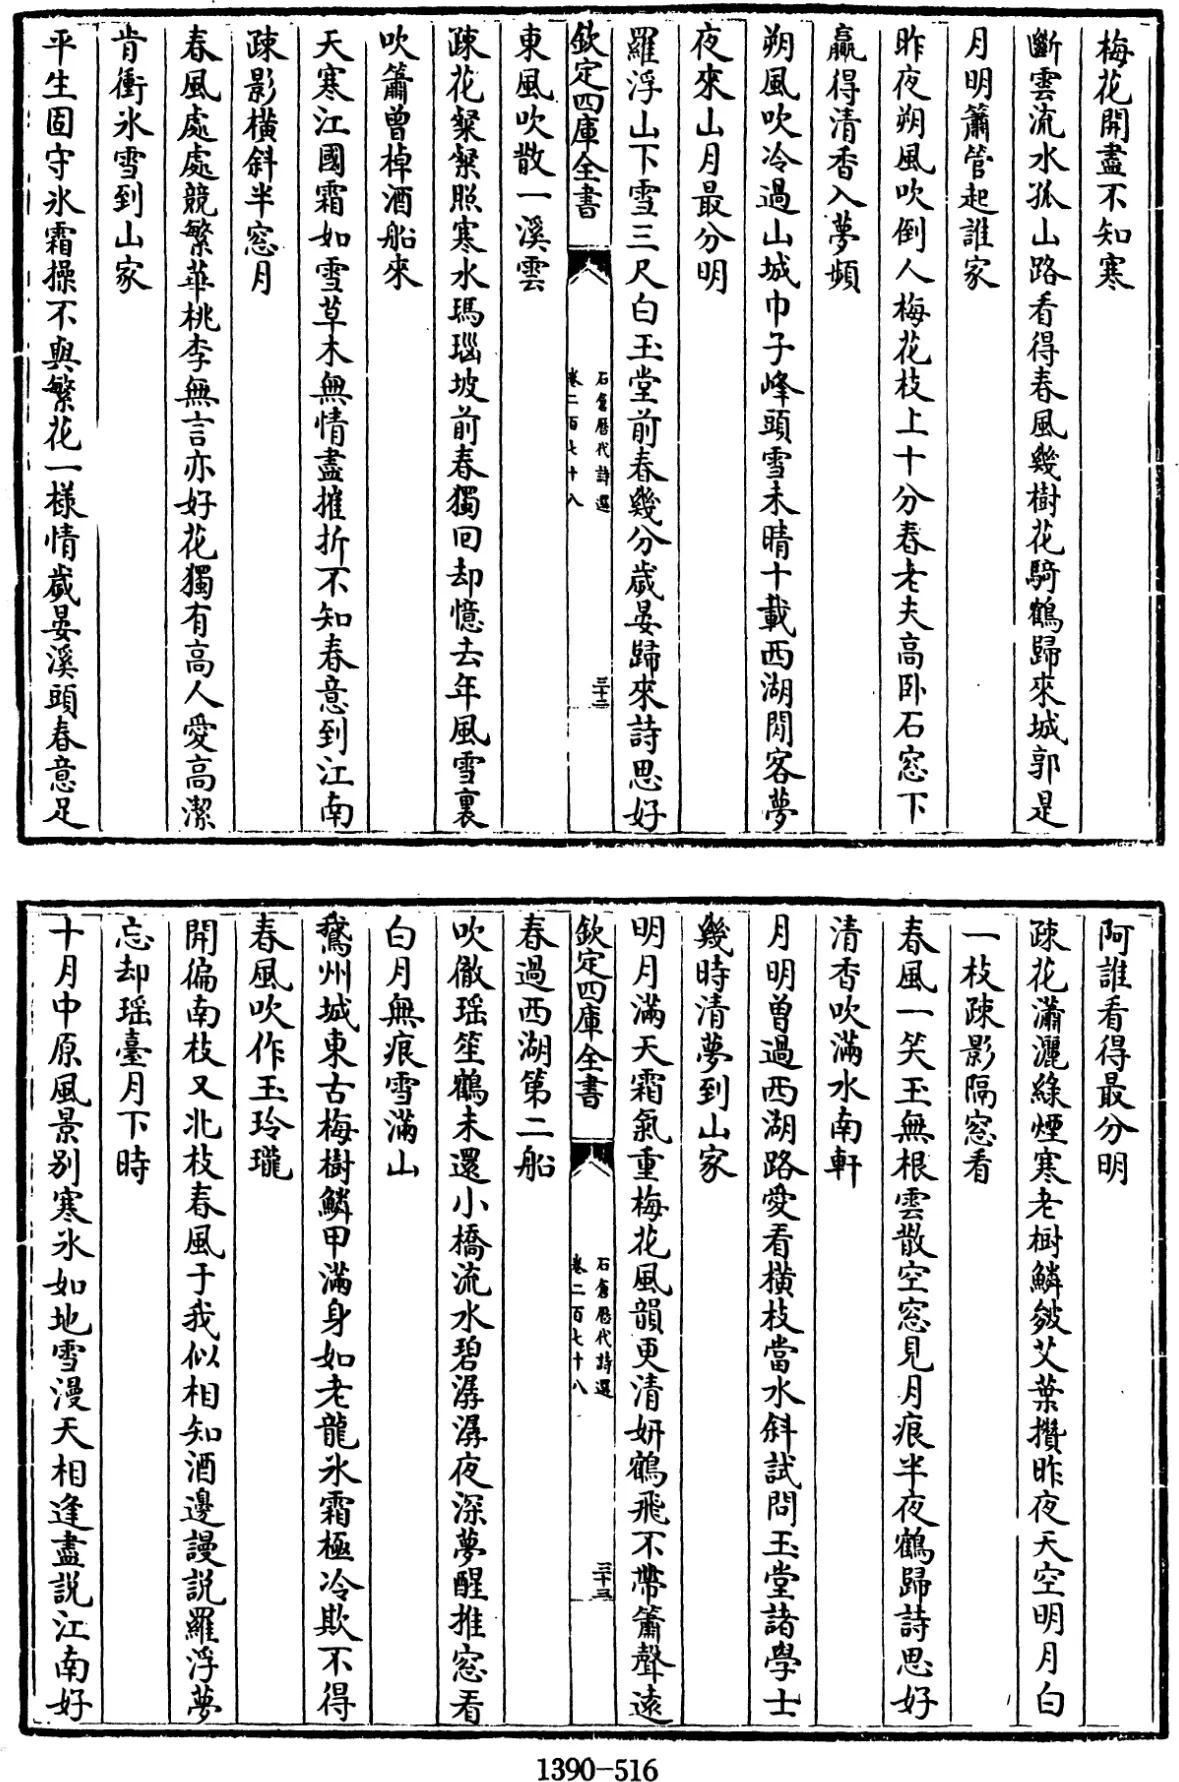 梅花開盡不知寒
斷雲流水孤山路看得春風幾樹花騎鶴歸來城郭是
月明簫管起誰家
昨夜朔風吹倒人梅花枝上十分春老夫高卧石窓下
贏得清香入夢頻
朔風吹冷過山城巾子峰頭雪未晴十載西湖閒客夢
夜來山月最分明
羅浮山下雪三尺白玉堂前春幾分歲晏歸來詩思好
欽定四庫全書
石倉歷代詩選
卷二百七十八
三十二
東風吹散一溪雲
疎花粲粲照寒水瑪瑙坡前春獨回却憶去年風雪裏
吹簫曾棹酒船來
天寒江國霜如雪草木無情盡摧折不知春意到江南
疎影橫斜半窓月
春風處處競繁華桃李無言亦好花獨有高人愛高潔
肯衝氷雪到山家
平生固守氷霜操不與繁花一樣情歲晏溪頭春意足
阿誰看得最分明
疎花瀟灑綠煙寒老樹鱗皴艾葉攢昨夜天空明月白
一枝疎影隔窓看
春風一笑玉無根雲散空窓見月痕半夜鶴歸詩思好
清香吹滿水南軒
月明曾過西湖路愛看橫枝當水斜試問玉堂諸學士
幾時清夢到山家
明月滿天霜氣重梅花風韻更清妍鶴飛不帶簫聲遠
欽定四庫全書
石倉歷代詩選
卷二百七十八
三十三
春過西湖第二船
吹徹瑶笙鶴未還小橋流水碧潺潺夜深夢醒推窓看
白月無痕雪滿山
鵞州城東古梅樹鱗甲滿身如老龍氷霜極冷欺不得
春風吹作玉玲瓏
開徧南枝又北枝春風于我似相知酒邊謾説羅浮夢
忘却瑶臺月下時
十月中原風景別寒氷如地雪漫天相逢盡説江南好
1390-516